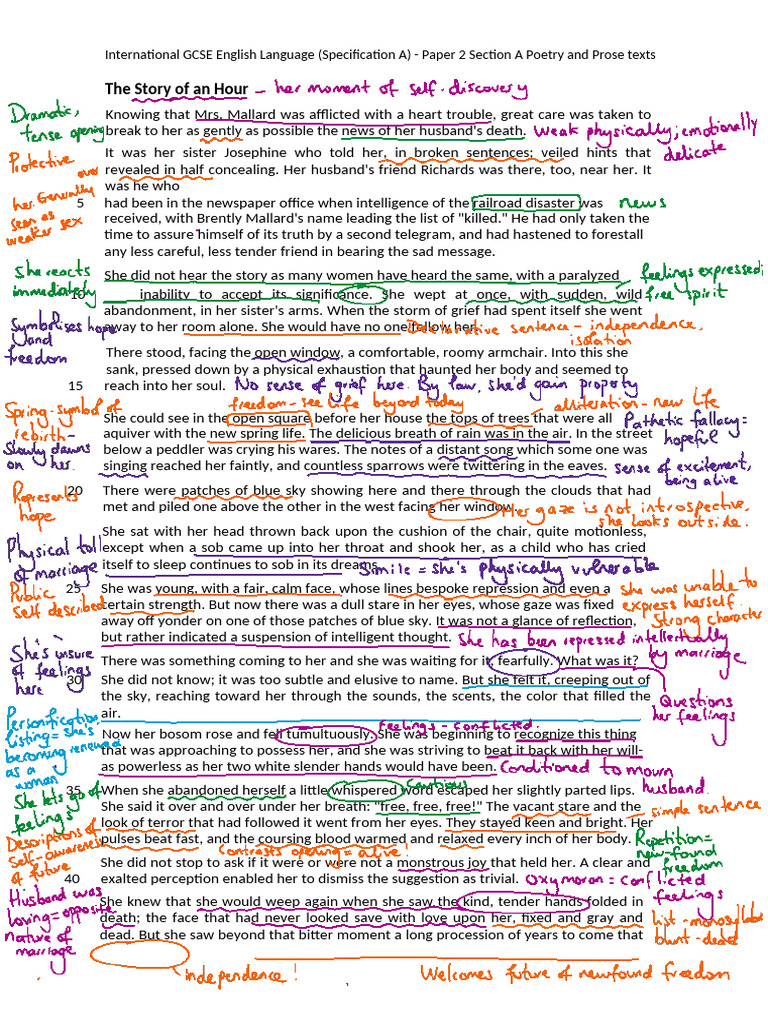 International GCSE English Language (Specification A) - Paper 2 Section A Poetry and Prose texts
The Story of an Hour - her moment of self-discovery
Dramatic, tense opening
Knowing that Mrs. Mallard was afflicted with a heart trouble, great care was taken to
break to her as gently as possible the news of her husband's death. Weak physically; emotionally delicate
Protective over her. Generally seen as weaker sex
It was her sister Josephine who told her, in broken sentences; veiled hints that
revealed in half concealing. Her husband's friend Richards was there, too, near her. It
was he who
5 had been in the newspaper office when intelligence of the railroad disaster was news
received, with Brently Mallard's name leading the list of "killed." He had only taken the
time to assure himself of its truth by a second telegram, and had hastened to forestall
any less careful, less tender friend in bearing the sad message.
She reacts immediately
She did not hear the story as many women have heard the same, with a paralyzed
feelings expressed; free spirit
10 inability to accept its significance. She wept at once, with sudden, wild
abandonment, in her sister's arms. When the storm of grief had spent itself she went
Symbolises hope and freedom
away to her room alone. She would have no one follow her.
Declarative sentence - independence, isolation
There stood, facing the open window, a comfortable, roomy armchair. Into this she
sank, pressed down by a physical exhaustion that haunted her body and seemed to
15 reach into her soul. No sense of grief here. By law, she'd gain property
Spring-symbol of rebirth - Slowly dawns on her.
freedom - see life beyond today
alliteration - new life
She could see in the open square before her house the tops of trees that were all
Pathetic fallacy = hopeful
aquiver with the new spring life. The delicious breath of rain was in the air. In the street
below a peddler was crying his wares. The notes of a distant song which some one was
singing reached her faintly, and countless sparrows were twittering in the eaves.
sense of excitement, being alive
Represents hope
20 There were patches of blue sky showing here and there through the clouds that had
met and piled one above the other in the west facing her window.
Her gaze is not introspective, she looks outside.
She sat with her head thrown back upon the cushion of the chair, quite motionless,
Physical toll of marriage
except when a sob came up into her throat and shook her, as a child who has cried
itself to sleep continues to sob in its dreams.
Simile = she's physically vulnerable
Public self described
25 She was young, with a fair, calm face, whose lines bespoke repression and even a
She was unable to express herself. Strong character
certain strength. But now there was a dull stare in her eyes, whose gaze was fixed
away off yonder on one of those patches of blue sky. It was not a glance of reflection,
but rather indicated a suspension of intelligent thought.
She has been repressed intellectually by marriage
She's unsure of feelings here
There was something coming to her and she was waiting for it, fearfully. What was it?
30 She did not know; it was too subtle and elusive to name. But she felt it, creeping out of
the sky, reaching toward her through the sounds, the scents, the color that filled the
air.
Questions her feelings
Personification, listing = she's becoming renewed as a woman
feelings - conflicted.
Now her bosom rose and fell tumultuously. She was beginning to recognize this thing
that was approaching to possess her, and she was striving to beat it back with her will-
as powerless as her two white slender hands would have been.
Conditioned to mourn husband.
She lets go of feelings
Cautious
35 When she abandoned herself a little whispered word escaped her slightly parted lips.
She said it over and over under her breath: "free, free, free!" The vacant stare and the
simple sentence
look of terror that had followed it went from her eyes. They stayed keen and bright. Her
Descriptions of self-awareness of future
pulses beat fast, and the coursing blood warmed and relaxed every inch of her body.
Contrasts opening = alive.
Repetition = new-found freedom
She did not stop to ask if it were or were not a monstrous joy that held her. A clear and
40 exalted perception enabled her to dismiss the suggestion as trivial.
Oxymoron = conflicted feelings
Husband was loving = opposite nature of marriage
She knew that she would weep again when she saw the kind, tender hands folded in
death; the face that had never looked save with love upon her, fixed and gray and
list - monosyllabic blunt - dead
dead. But she saw beyond that bitter moment a long procession of years to come that
independence!
Welcomes future of newfound freedom